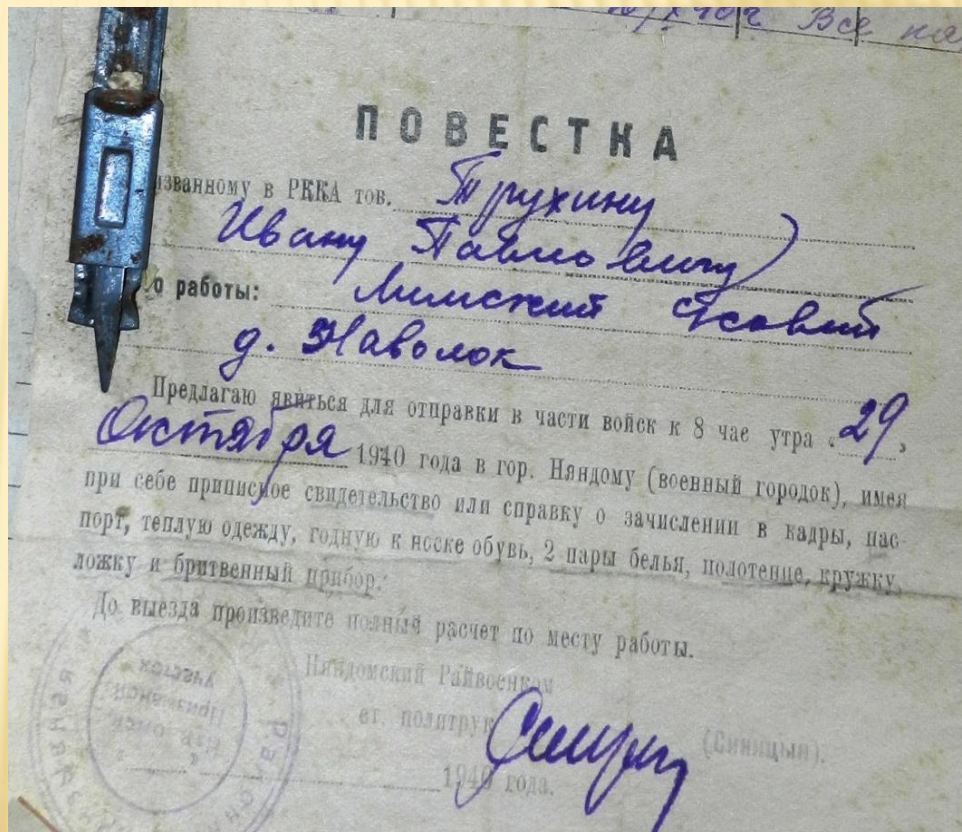 Все
ПОВЕСТКА
изванному в РККА тов. Трухину
Ивану Павловичу
о работы: Лимский с/совет
д. Наволок
Предлагаю явиться для отправки в части войск к 8 час утра „29„
Октября 1940 года в гор. Няндому (военный городок), имея
при себе приписное свидетельство или справку о зачислении в кадры, пас-
порт, теплую одежду, годную к носке обувь, 2 пары белья, полотенце, кружку,
ложку и бритвенный прибор.
До выезда произведите полный расчет по месту работы.
Няндомский Райвоенком
ст. политрук (Синицын).
1940 года.